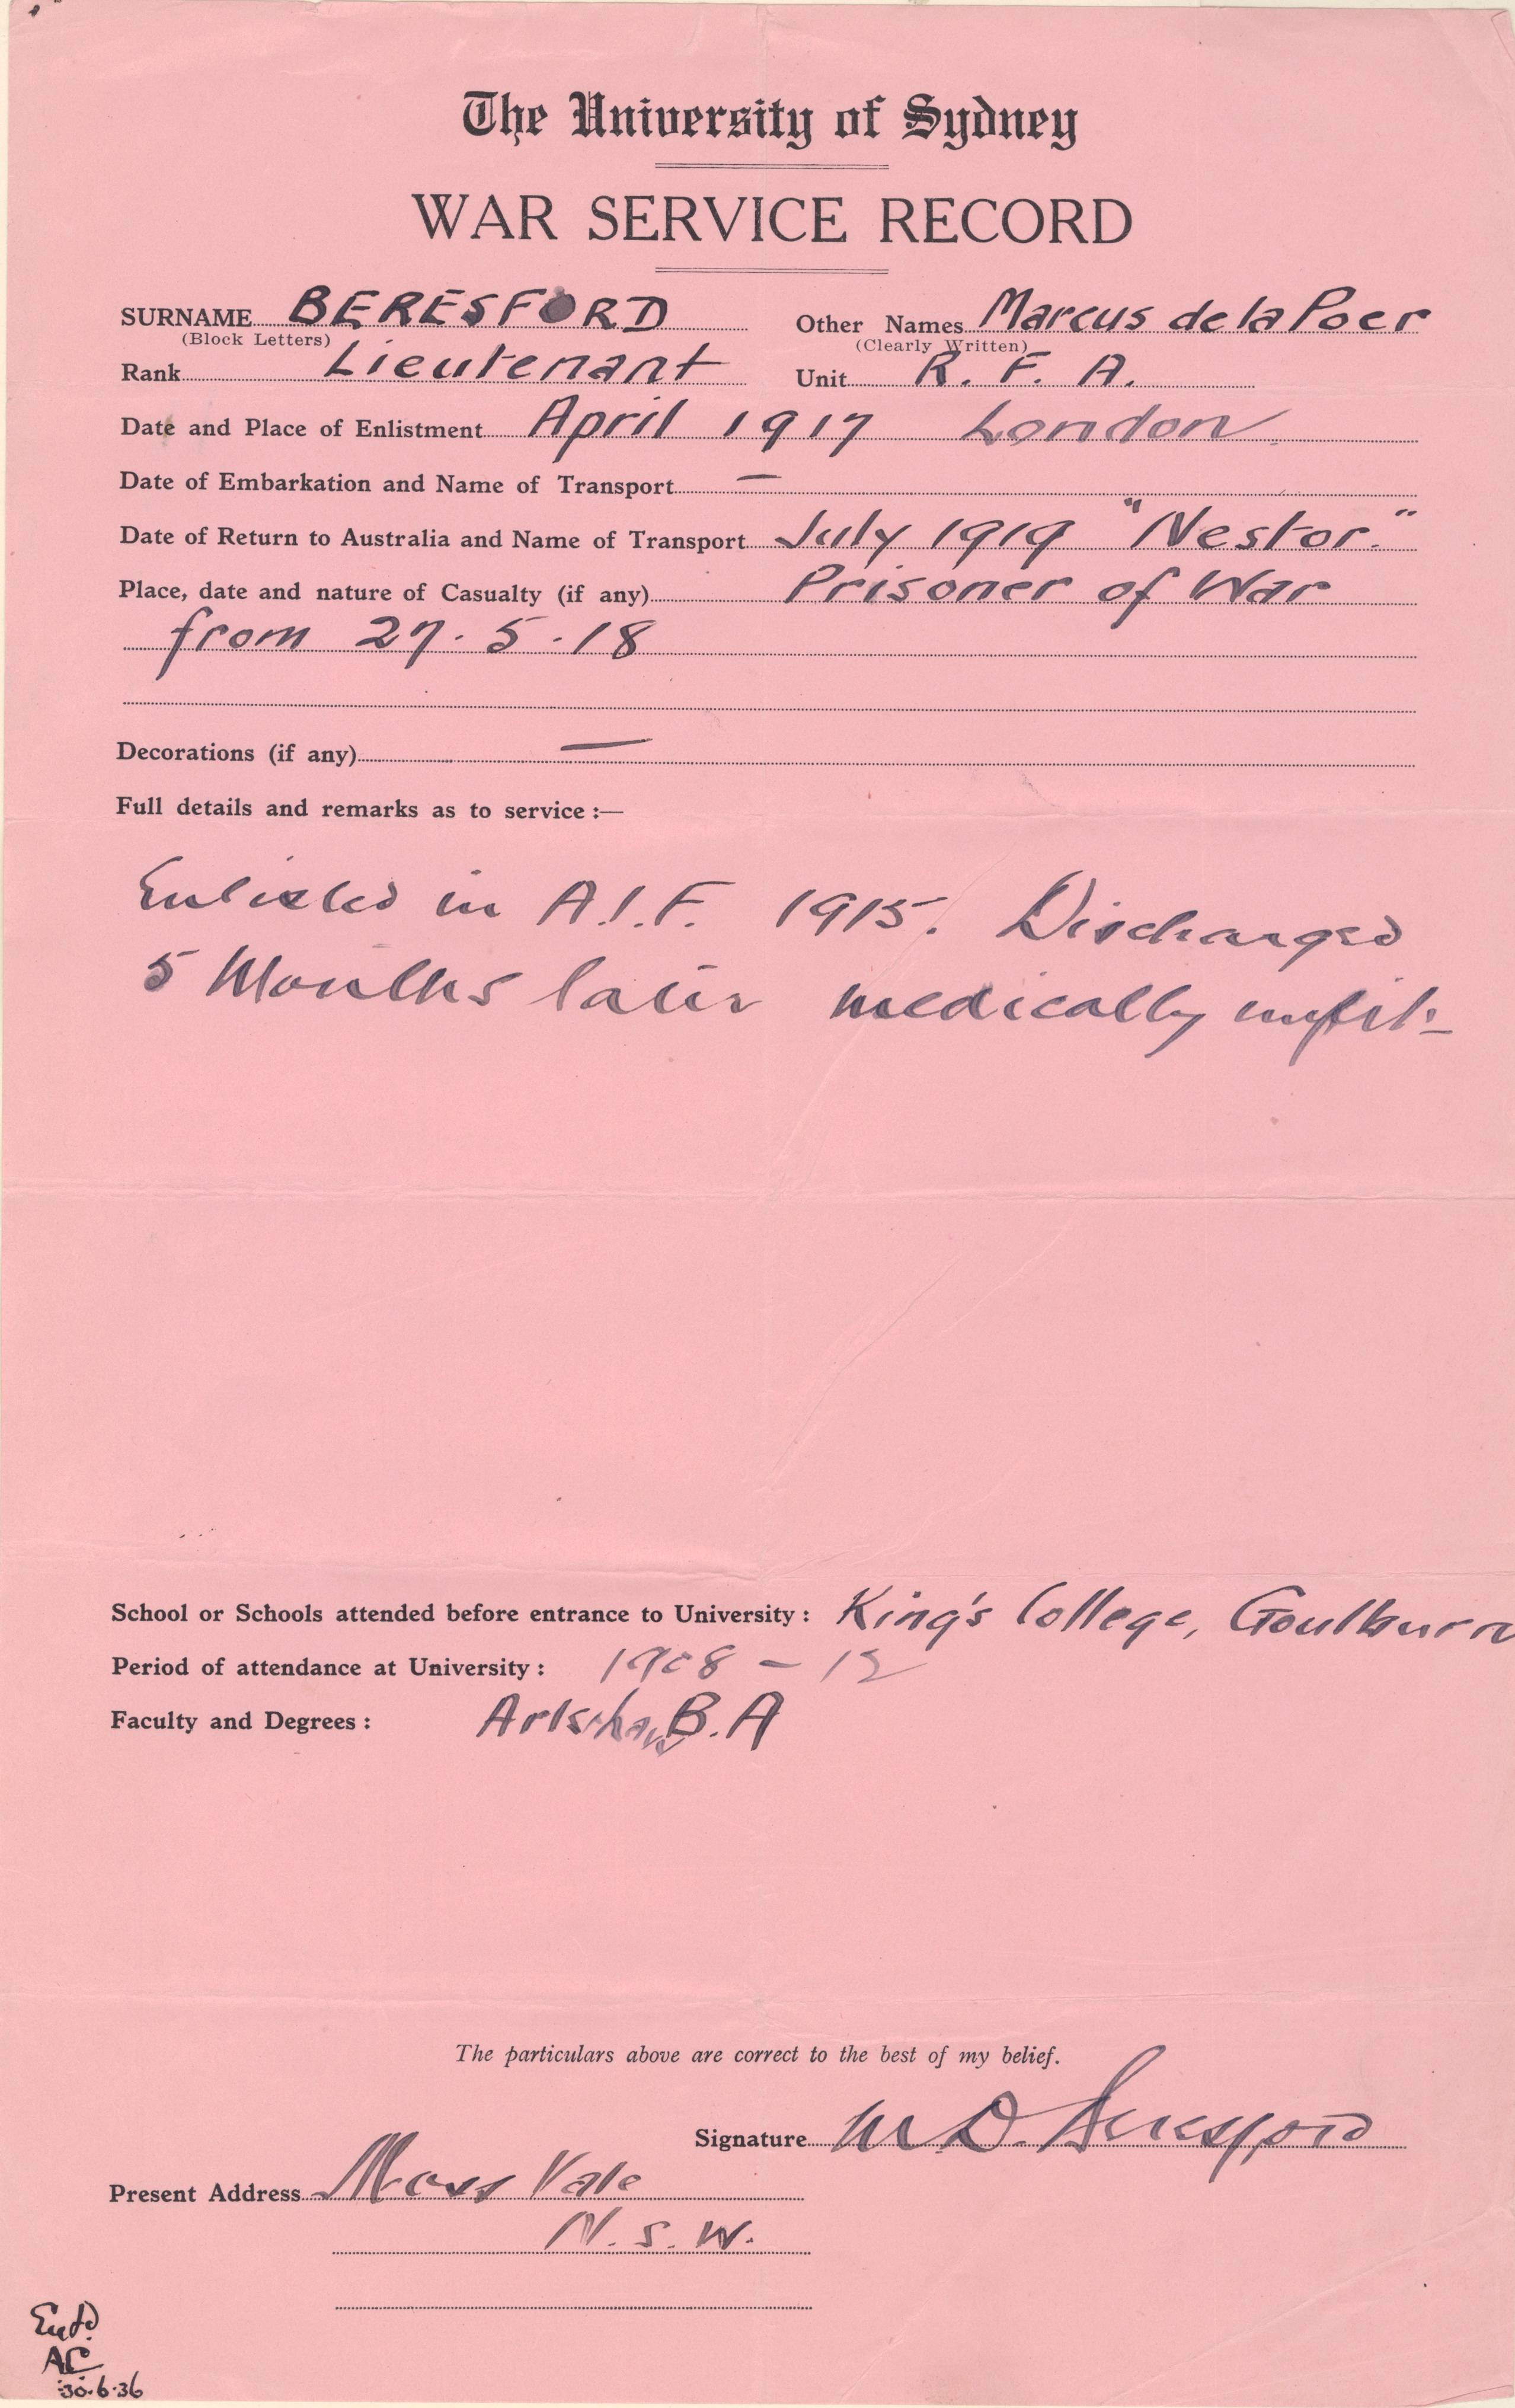 The University of Sydney
WAR SERVICE RECORD
SURNAME BERESFORD Other Names Marcus de la Poer
(Block Letters) (Clearly Written)
Rank Lieutenant Unit R. F. A.
Date and Place of Enlistment April 1917 London
Date of Embarkation and Name of Transport —
Date of Return to Australia and Name of Transport July 1919 "Nestor."
Place, date and nature of Casualty (if any) Prisoner of War
from 27.5.18
Decorations (if any) —
Full details and remarks as to service :—
Enlisted in A.I.F. 1915. Discharged
5 Months later medically unfit.
School or Schools attended before entrance to University : King's College, Goulburn
Period of attendance at University : 1908 – 12
Faculty and Degrees : Arts B.A
The particulars above are correct to the best of my belief.
Signature M D. Beresford
Present Address Moss Vale
N. S. W.
Entd.
AC
30.6.36